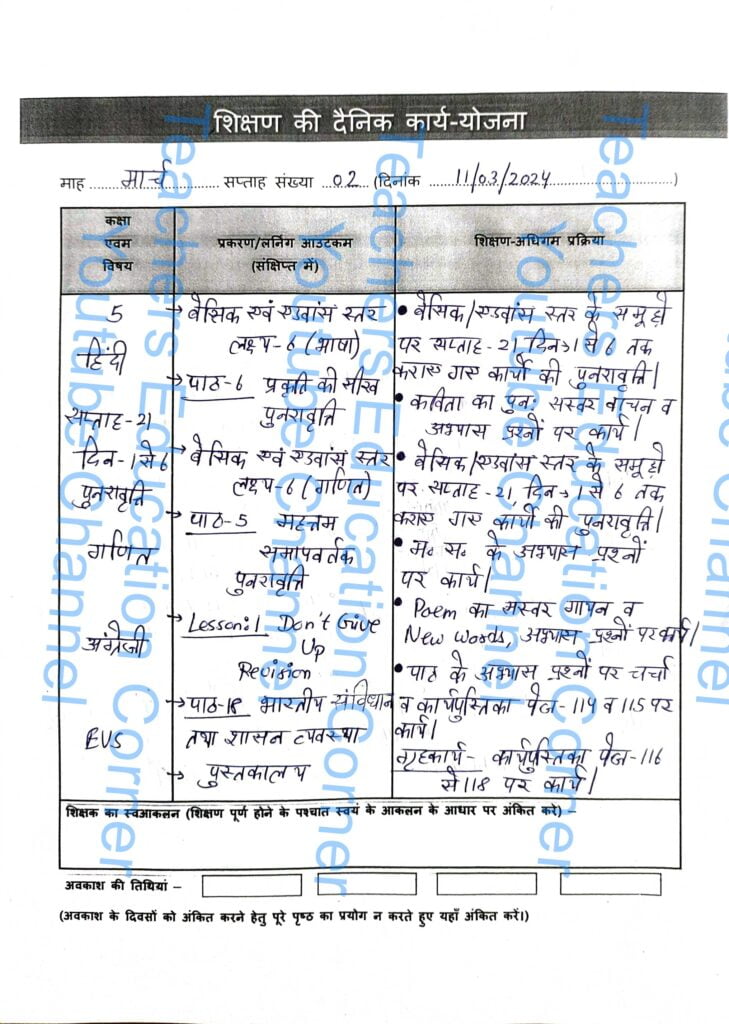 शिक्षण की दैनिक कार्य-योजना
माह ....मार्च.... सप्ताह संख्या ...02... (दिनांक ....11/03/2024....)
कक्षा
एवम
विषय
प्रकरण/लर्निंग आउटकम
(संक्षिप्त में)
शिक्षण-अधिगम प्रक्रिया
5
हिंदी
सप्ताह-21
दिन-1 से 6
पुनरावृत्ति
गणित
अंग्रेजी
EVS
→ बेसिक एवं एडवांस स्तर
लक्ष्य-6 (भाषा)
→ पाठ-6 प्रकृति की सीख
पुनरावृत्ति
→ बेसिक एवं एडवांस स्तर
लक्ष्य-6 (गणित)
→ पाठ-5 महत्तम
समापवर्तक
पुनरावृत्ति
→ Lesson:1 Don't Give
Up
Revision
→ पाठ-18 भारतीय संविधान
तथा शासन व्यवस्था
→ पुस्तकालय
• बेसिक/एडवांस स्तर के समूहो
पर सप्ताह-21, दिन→1 से 6 तक
कराए गए कार्यो की पुनरावृत्ति।
• कविता का पुनः सस्वर वाचन व
अभ्यास प्रश्नों पर कार्य।
• बेसिक/एडवांस स्तर के समूहो
पर सप्ताह-21, दिन→1 से 6 तक
कराए गए कार्यो की पुनरावृत्ति।
• म. स. के अभ्यास प्रश्नों
पर कार्य।
• Poem का सस्वर गायन व
New words, अभ्यास प्रश्नों पर कार्य।
• पाठ के अभ्यास प्रश्नों पर चर्चा
व कार्यपुस्तिका पेज-114 व 115 पर
कार्य।
गृहकार्य- कार्यपुस्तिका पेज-116
से 118 पर कार्य।
शिक्षक का स्वआकलन (शिक्षण पूर्ण होने के पश्चात स्वयं के आकलन के आधार पर अंकित करे) –
अवकाश की तिथियां –
(अवकाश के दिवसों को अंकित करने हेतु पूरे पृष्ठ का प्रयोग न करते हुए यहाँ अंकित करें।)
Teachers Education Corner
Youtube Channel
Teachers Education Corner
Youtube Channel
Teachers Education Corner
Youtube Channel